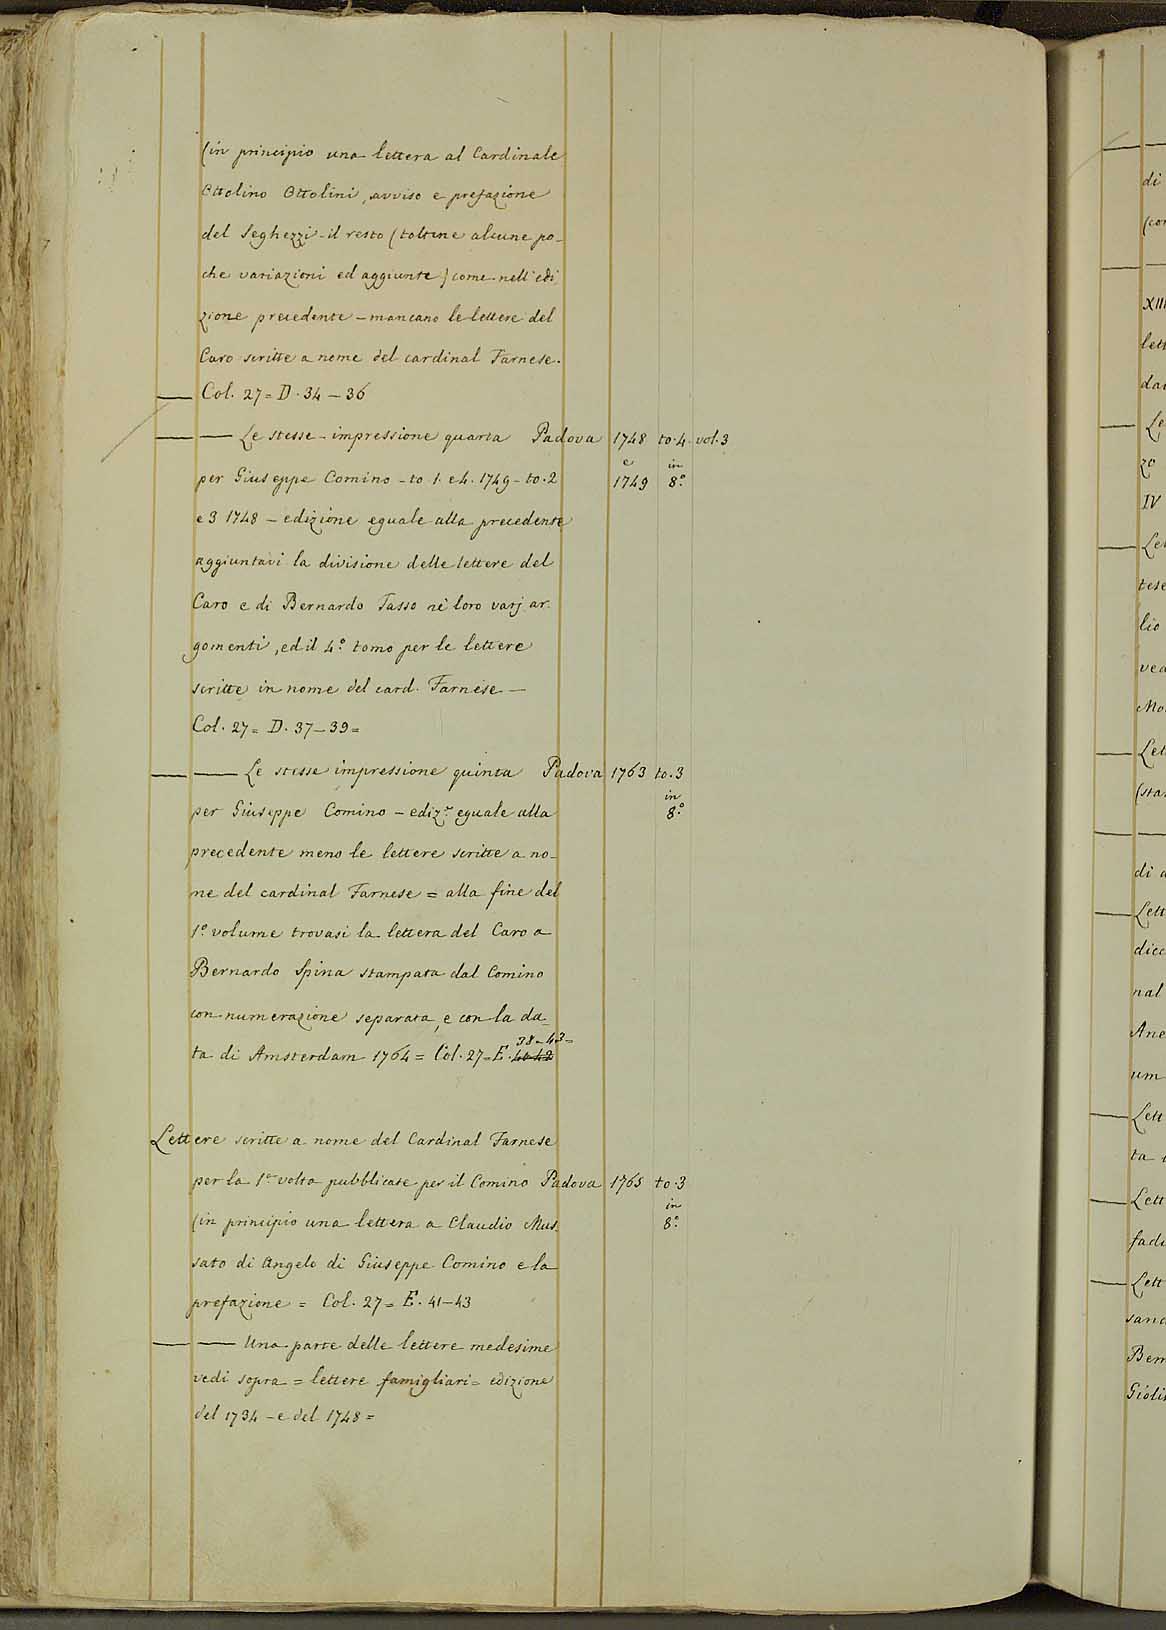 (in principio una lettera al Cardinale
Ottolino Ottolini, avviso e prefazione
del Seghezzi - il resto (toltene alcune po-
che variazioni ed aggiunte) come nell'edi
zione precedente - mancano le lettere del
Caro scritte a nome del cardinal Farnese.
Col. 27 = D. 34 - 36
— — Le stesse - impressione quarta Padova 1748 to. 4. vol. 3
e in
per Giuseppe Comino - to 1. e 4. 1749 - to. 2 1749 8.°
e 3 1748 - edizione eguale alla precedente
aggiuntavi la divisione delle lettere del
Caro e di Bernardo Tasso nè loro varj ar.
gomenti, ed il 4.° tomo per le lettere
scritte in nome del card. Farnese —
Col. 27 = D. 37 - 39 =
— — Le stesse impressione quinta Padova 1763 to. 3
in
per Giuseppe Comino - ediz.e eguale alla 8.°
precedente meno le lettere scritte a no-
me del cardinal Farnese = alla fine del
1.° volume trovasi la lettera del Caro a
Bernardo Spina stampata dal Comino
con numerazione separata, e con la da-
38 - 43 =
ta di Amsterdam 1764 = Col. 27 = E.
Lettere scritte a nome del Cardinal Farnese
per la 1.a volta pubblicate per il Comino Padova 1765 to. 3
in
(in principio una lettera a Claudio Mus. 8.°
sato di Angelo di Giuseppe Comino e la
prefazione = Col. 27 = E. 41 - 43
— — Una parte delle lettere medesime
vedi sopra = lettere famigliari = edizione
del 1734 - e del 1748 =
di
XIII
lett
zo
IV
tese
lio
Mo
(sta
di
Lett
dicc
nal
Ane
um
Lett
ta
Lett
fadi
Lett
sanc
Bern
Gioli